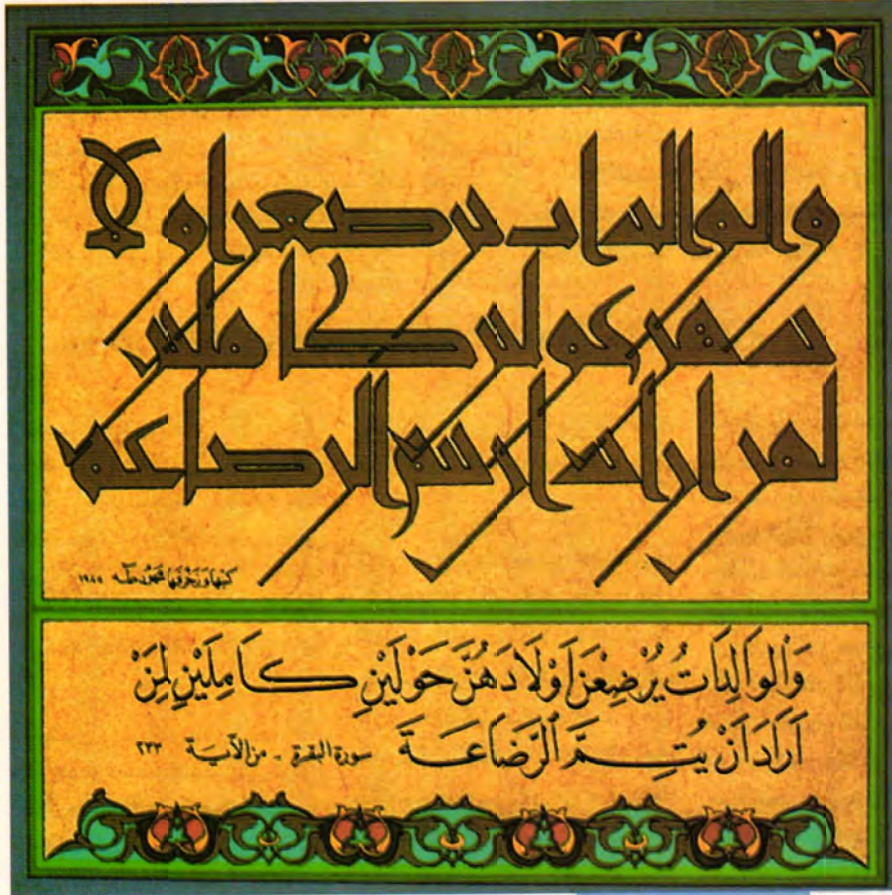 والوالدات يرضعن اولا
دهن حولين كاملين
لمن اراد ان يتم الرضاعة
كتبها وزخرفها محمود طه ١٩٨٥
وَالْوَالِدَاتُ يُرْضِعْنَ اَوْلَادَهُنَّ حَوْلَيْنِ كَامِلَيْنِ لِمَنْ
اَرَادَ اَنْ يُتِمَّ ٱلرَّضَاعَةَ سورة البقرة - من الآية ٢٣٣